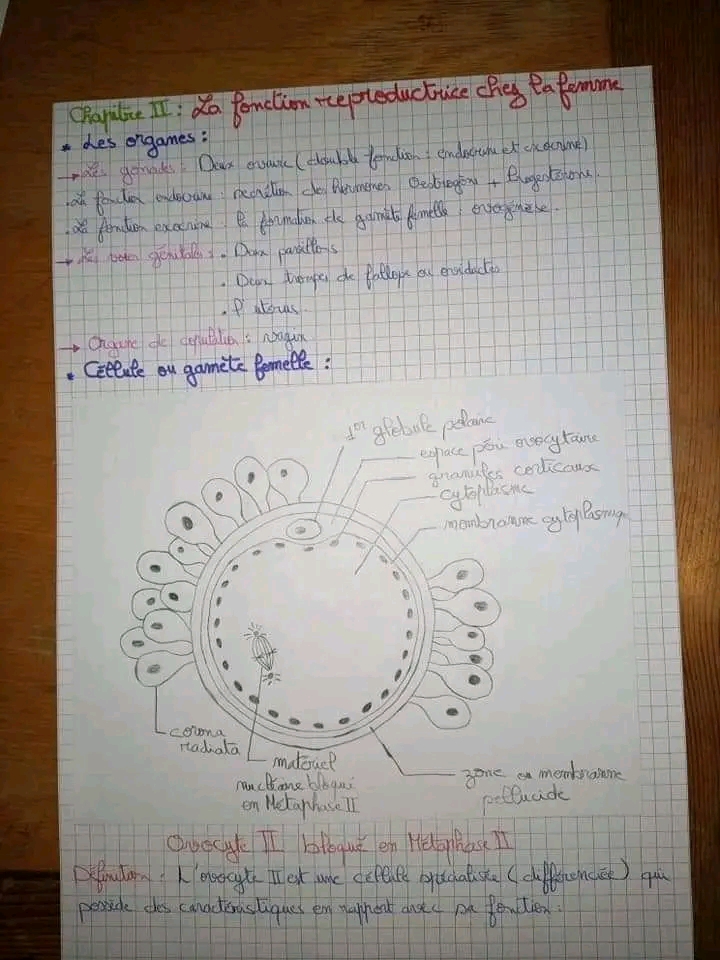 Chapitre II : La fonction reproductrice chez la femme
• Les organes :
→ Les gonades : Deux ovaire (double fonction : endocrine et exocrine)
. La fonction endocrine : secrétion des hormones Oestrogène + Progesterone.
. La fonction exocrine : la formation de gamète femelle : ovogénèse.
→ Les voies génitales : . Deux pavillons
. Deux trompes de fallope ou oviductes
. l'uterus.
→ Organe de copulation : vagin
• Céllule ou gamète femelle :
1er globule polaire
espace péri ovocytaire
granules corticaux
cytoplasme
membranne cytoplasmique
corona
radiata
matériel
nucléaire bloqué
en Métaphase II
zone ou membranne
pellucide
Ovocyte II bloqué en Métaphase II
Définition : L'ovocyte II est une céllule spécialisée (différenciée) qui
possède des caractéristiques en rapport avec sa fonction :